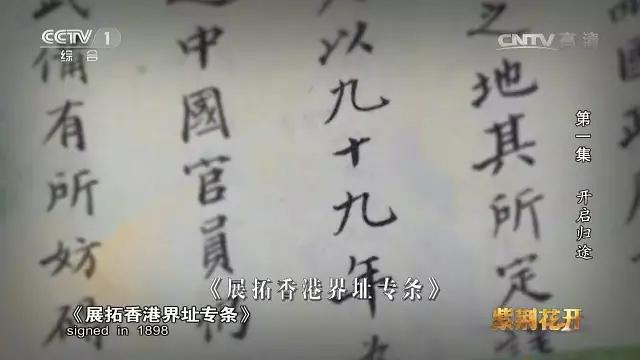 CCTV 1
综合
CNTV 高清
国
之地其所定
以九十九年
中國官員
備有所妨碍
第一集 开启归途
《展拓香港界址专条》
《展拓香港界址专条》
signed in 1898
紫荆花开